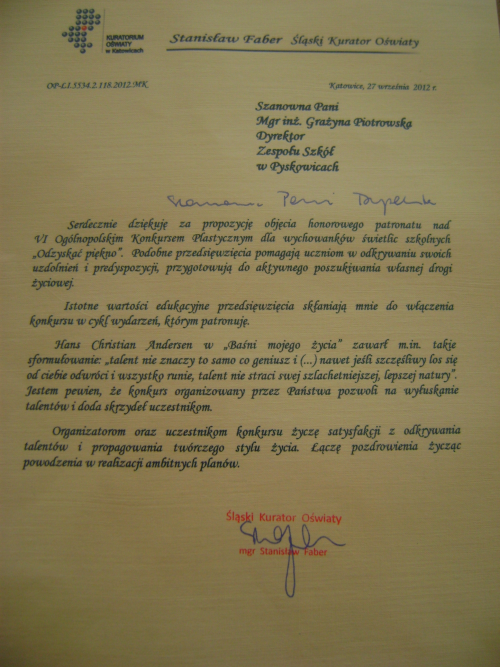 KURATORIUM
OŚWIATY
w Katowicach
Stanisław Faber Śląski Kurator Oświaty
OP-ŁI.5534.2.118.2012.MK
Katowice, 27 września 2012 r.
Szanowna Pani
Mgr inż. Grażyna Piotrowska
Dyrektor
Zespołu Szkół
w Pyskowicach
Szanowna Pani Dyrektor
Serdecznie dziękuję za propozycję objęcia honorowego patronatu nad
VI Ogólnopolskim Konkursem Plastycznym dla wychowanków świetlic szkolnych
„Odzyskać piękno”. Podobne przedsięwzięcia pomagają uczniom w odkrywaniu swoich
uzdolnień i predyspozycji, przygotowują do aktywnego poszukiwania własnej drogi
życiowej.
Istotne wartości edukacyjne przedsięwzięcia skłaniają mnie do włączenia
konkursu w cykl wydarzeń, którym patronuję.
Hans Christian Andersen w „Baśni mojego życia” zawarł m.in. takie
sformułowanie: „talent nie znaczy to samo co geniusz i (...) nawet jeśli szczęśliwy los się
od ciebie odwróci i wszystko runie, talent nie straci swej szlachetniejszej, lepszej natury”.
Jestem pewien, że konkurs organizowany przez Państwa pozwoli na wyłuskanie
talentów i doda skrzydeł uczestnikom.
Organizatorom oraz uczestnikom konkursu życzę satysfakcji z odkrywania
talentów i propagowania twórczego stylu życia. Łączę pozdrowienia życząc
powodzenia w realizacji ambitnych planów.
Śląski Kurator Oświaty
mgr Stanisław Faber